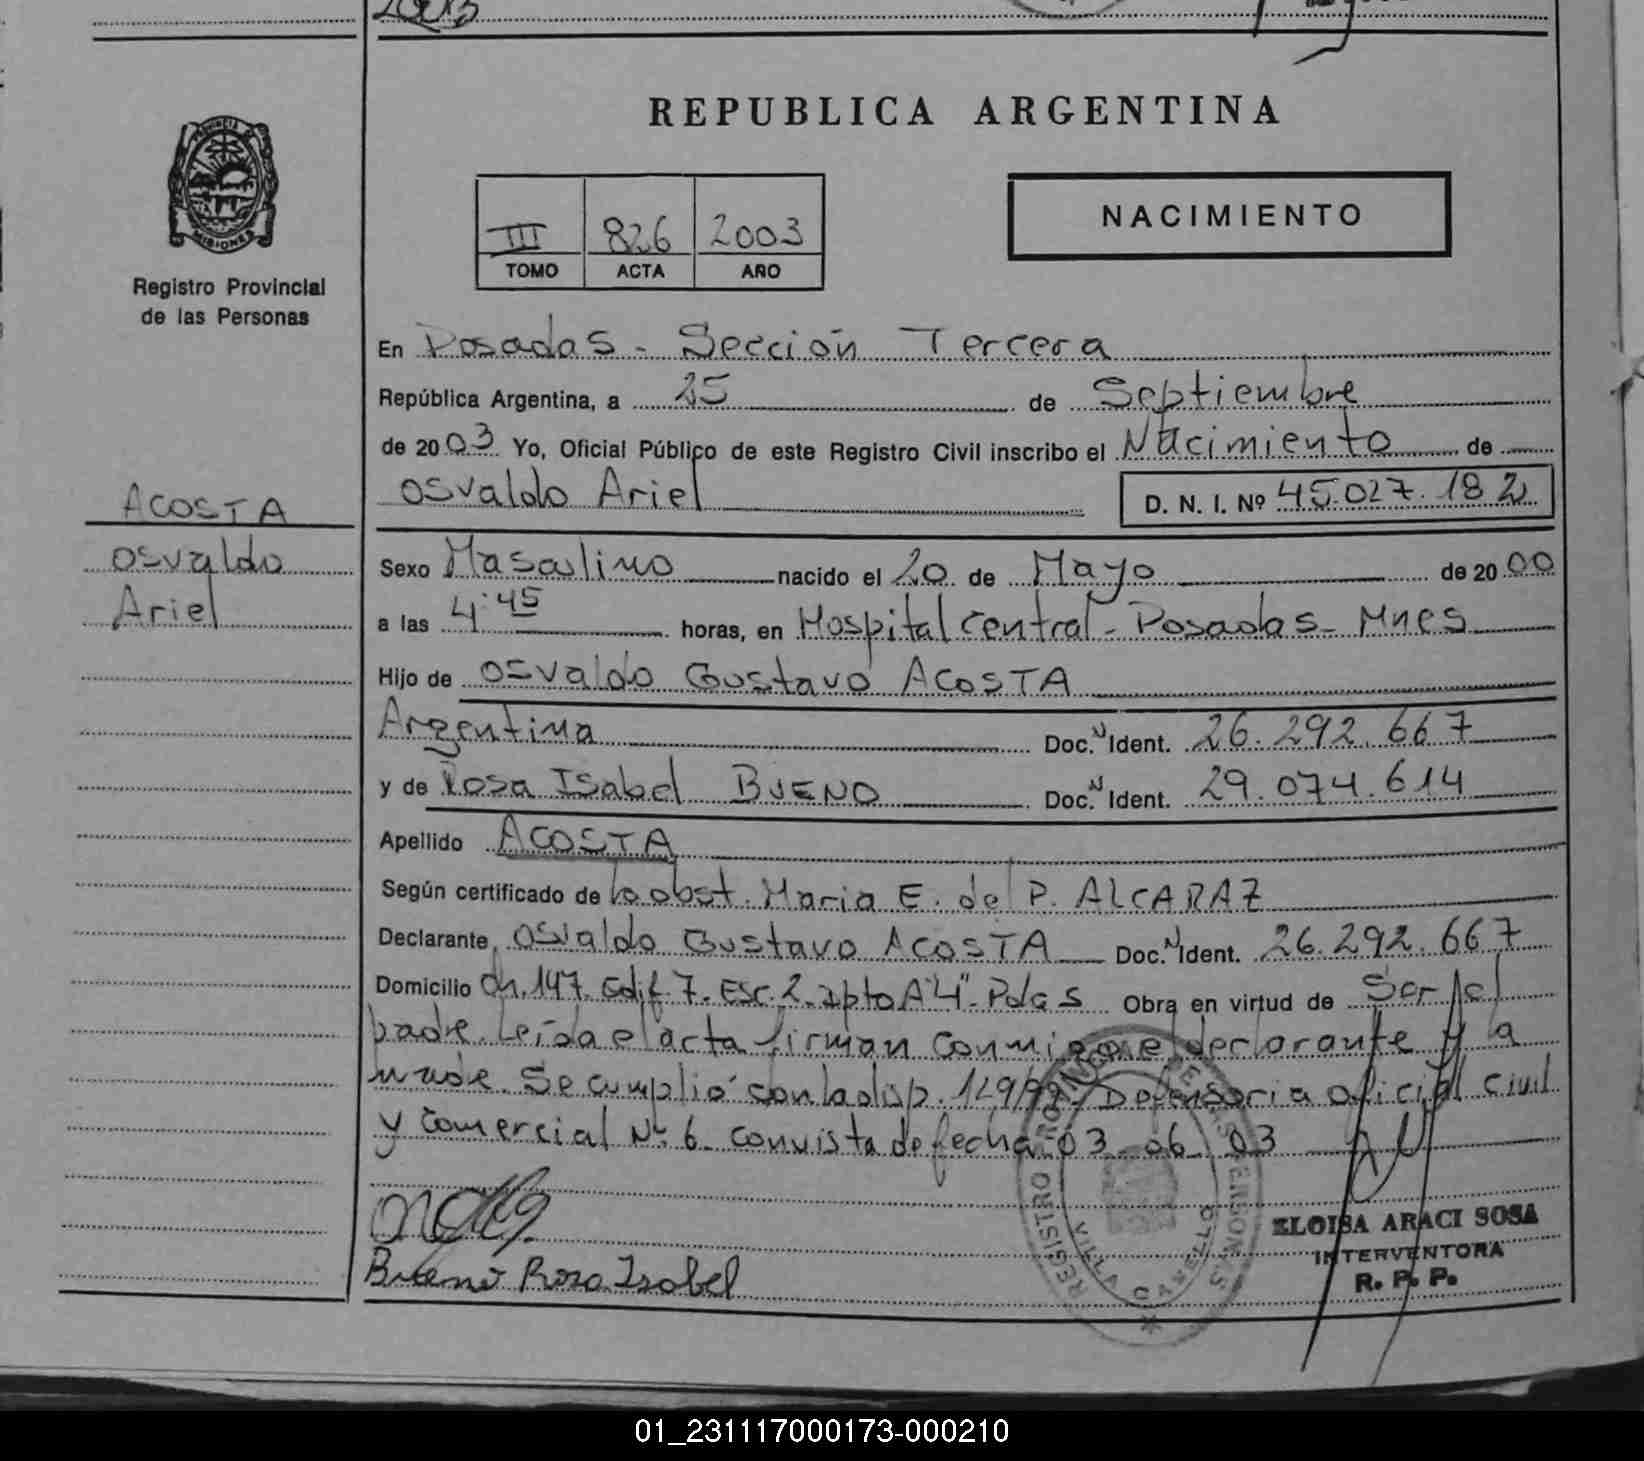 2003
REPUBLICA ARGENTINA
PROVINCIA DE
MISIONES
Registro Provincial
de las Personas
III 826 2003
TOMO ACTA AÑO
NACIMIENTO
En Posadas - Sección Tercera
República Argentina, a 25 de Septiembre
de 2003 Yo, Oficial Público de este Registro Civil inscribo el Nacimiento de
Osvaldo Ariel D. N. I. Nº 45.027.182
ACOSTA
Osvaldo
Ariel
Sexo Masculino nacido el 20 de Mayo de 2000
a las 4:45 horas, en Hospital Central - Posadas - Mnes
Hijo de Osvaldo Gustavo ACOSTA
Argentina Doc. N Ident. 26.292.667
y de Rosa Isabel BUENO Doc. N Ident. 29.074.614
Apellido ACOSTA
Según certificado de la obst. Maria E. del P. ALCARAZ
Declarante Osvaldo Gustavo ACOSTA Doc. N Ident. 26.292.667
Domicilio Ch. 147. Edif. 7. Esc. 2. dpto A "4" - Pdas Obra en virtud de Ser el
padre. Leída el acta firman conmigo el declarante y la
madre. Se cumplió con la disp. 129/99 / Defensoria oficial civil
y comercial Nº 6 con vista de fecha 03-06-03
Bueno Rosa Isabel
REGISTRO PROVINCIAL DE LAS PERSONAS
VILLA CABELLO
ELOISA ARACI SOSA
INTERVENTORA
R. P. P.
01_231117000173-000210